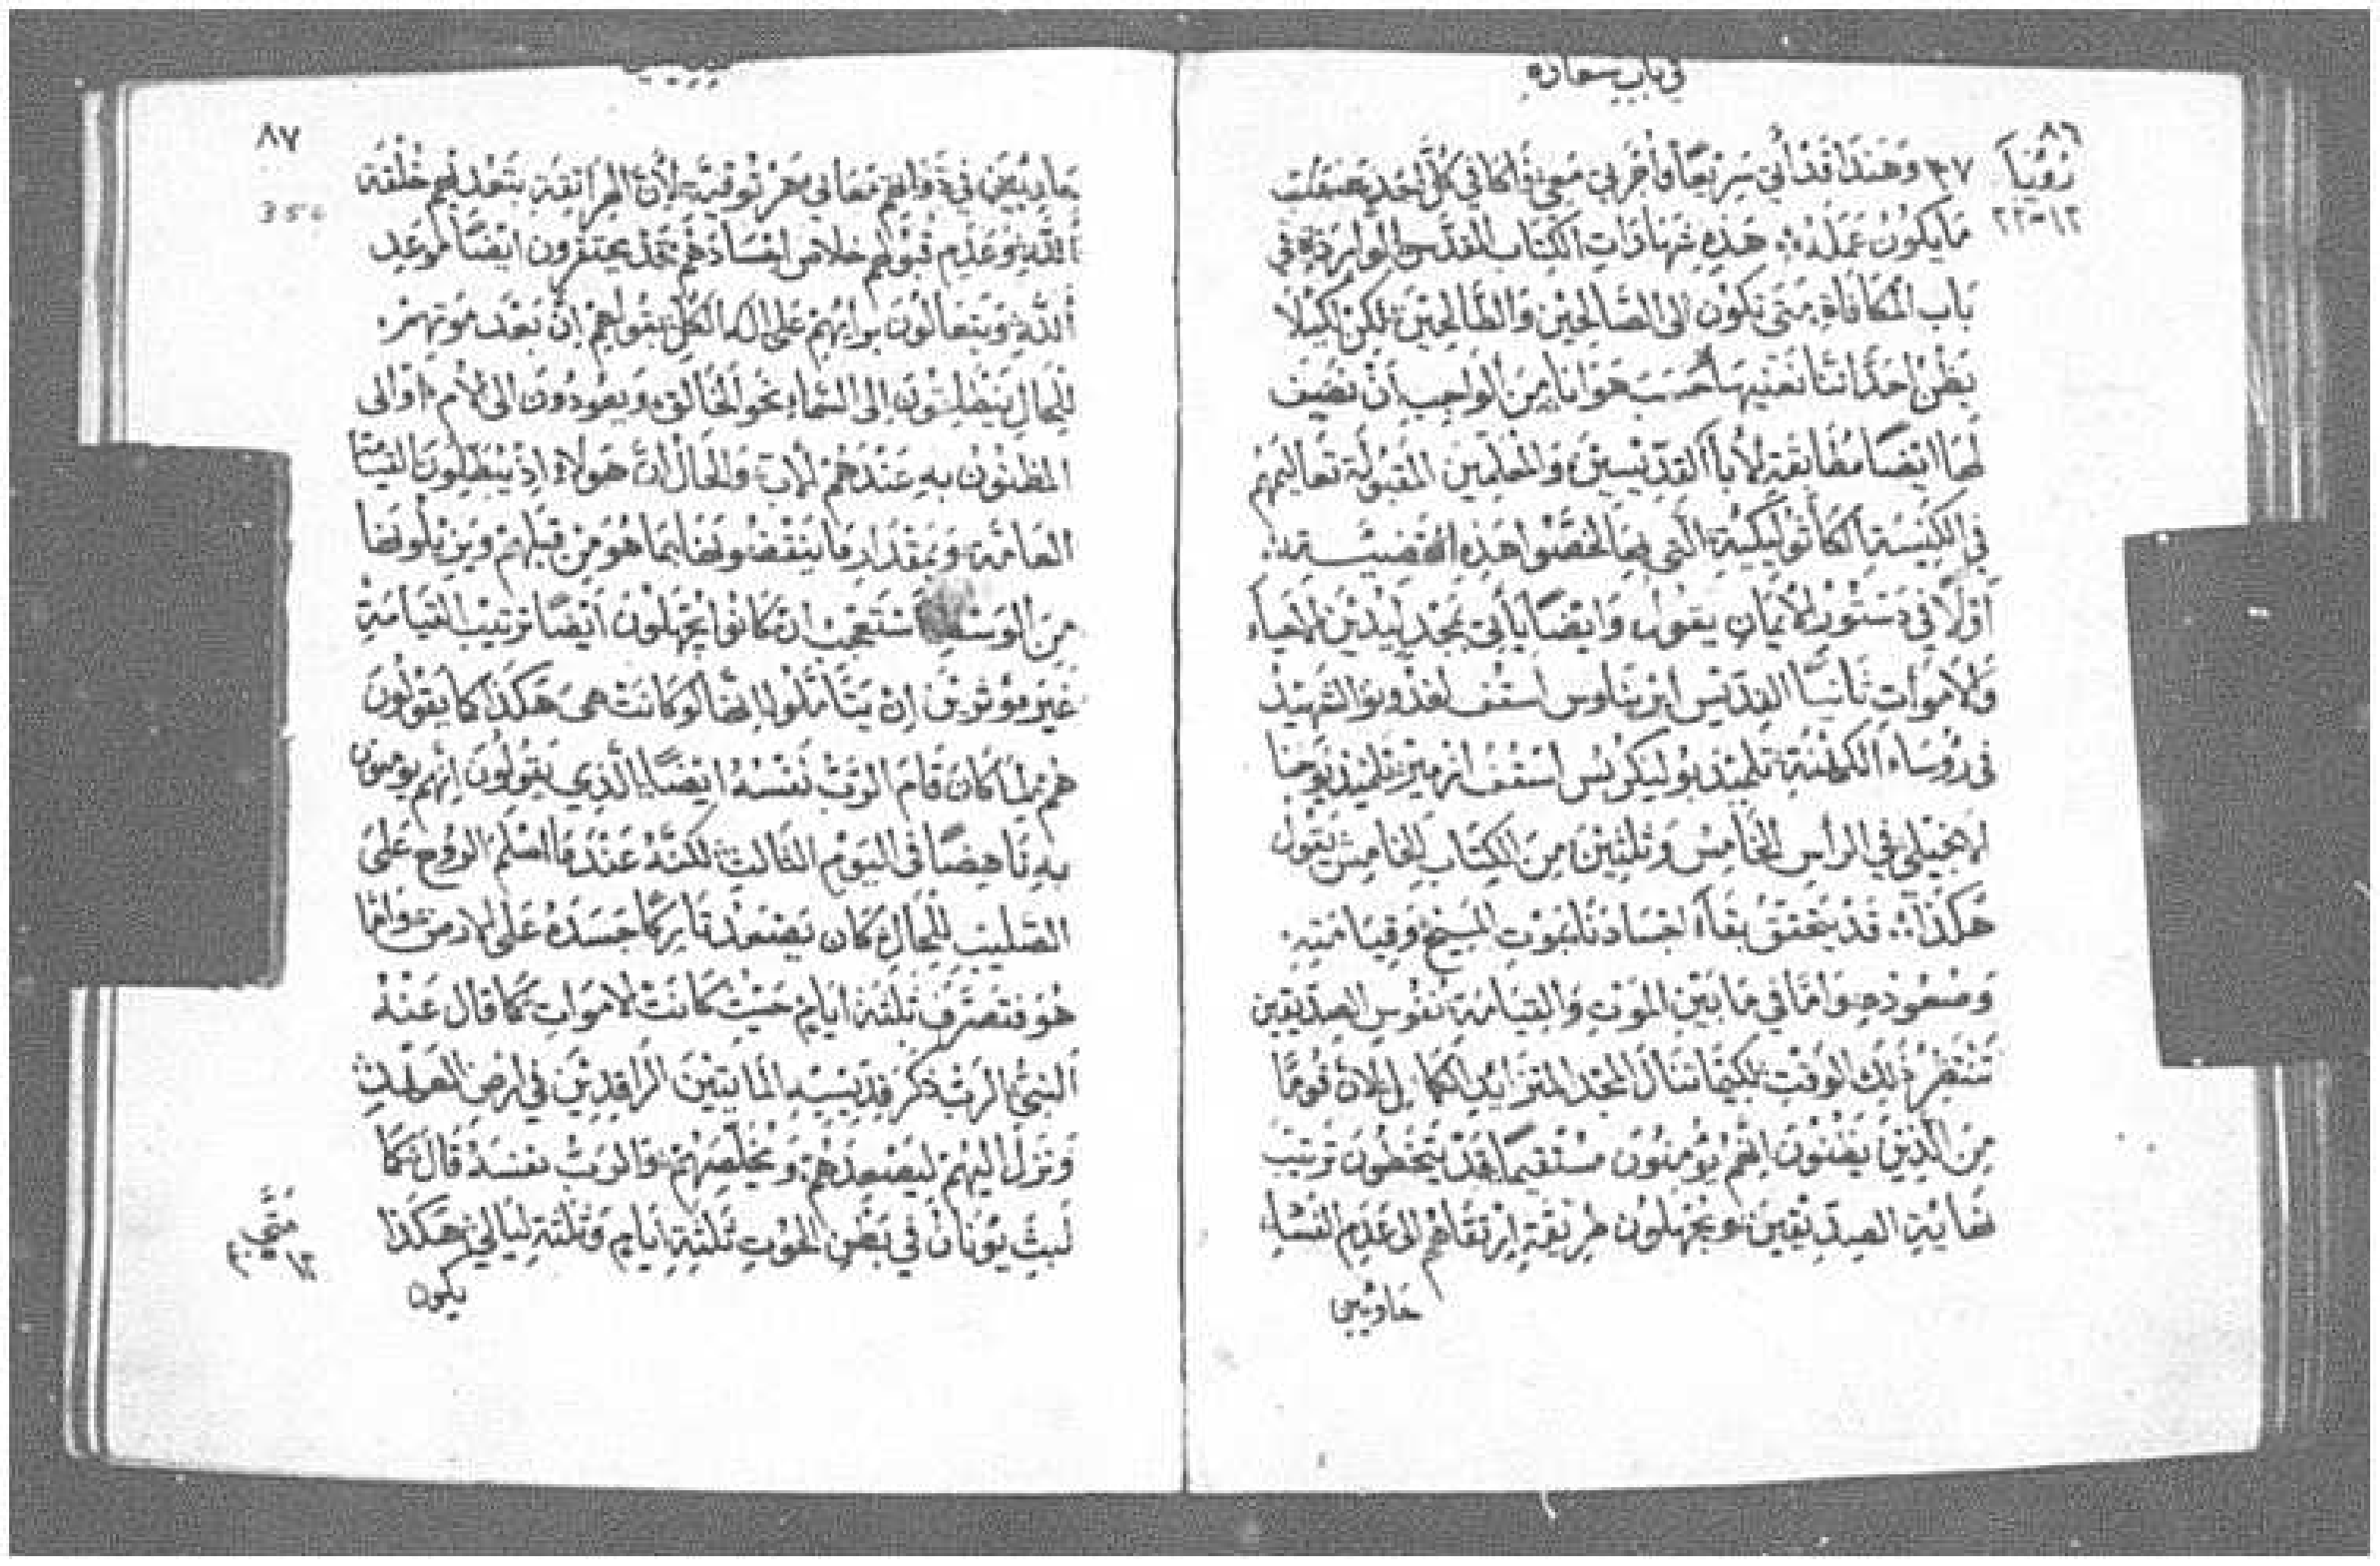 في باب سعادة
٨٦
رؤيا
٢٢=١٢
٣٧ وَهَنَذَا قَدْ أتي سَرِيْعًا وَأجْرِيْ مَعِي لأكافي كُلَّ احَدٍ
مَا يكونُ عَمَلُهُ: هَذِهِ شَهَادَات الكِتَاب المُقَدَّسِ الوَارِدَةِ في
بَاب المُكَافَاةِ مَتَى تكُون الى الصَّالِحِيْن وَالطَّالِحِيْنَ لكن لِكَيْلَا
يَظُنّ احَدٌ انَّنَا نَحَسَبَ هَوَانَا مِنَ الوَاجِب أنْ نُضِيْفَ
لَهَا ايْضًا مُطَابَقَة الأبَاء القِدِّيْسِيْنَ وَالمُعَلِّمِين المَقْبُولَة تَعَاليمُهُمْ
في الكَنِيْسَة الكَاثُوْلِيْكِيَّة الَّتي هَذِهِ القَضِيَّة:
أوَّلًا في دَسْتُوْرِ الأيْمَان يقول وَايْضًا يَأتي بِمَجْدٍ لِيُدِيْنَ الأحيَاء
وَالأمْوَاتِ ثَانيًا القِدِّيْس ايْريْنَاوس اسْقُف لُغْدُونُوْ الشَّهِيْدُ
في رُؤسَاء الكَهَنَة تِلْمِيْذ بوْليْكَرْبُس اسْقُف ازمِيْرَ تِلْمِيْذ يُوحَنَا
الإنجِيْلي في الرأس الخَامِسْ وَثَلثِيْنَ مِنَ الكِتَاب الخَامِسْ يَقُوْلُ
هَكَذَا: قَدْ تحَقَّقَ بقَاءُ اجْسَادَنَا بِمَوْتِ المَسِيْح وَقِيَامَتِهِ
وَصُعُوْدِهِ وَامَّا في مَا بَيْنَ المَوْتِ وَالقِيَامَة نُفُوس الصِدّيْقين
تَنْتَظِرُ ذَلِكَ الوَقْتَ لكَيْمَا تَنَالَ المَجْد المُتَزَايد الكَامِل لأنَّ قَوْمًا
مِنَ الَّذِيْنَ يَظُنّونَ انَّهُمْ يُؤْمِنُوْنَ مُسْتَقِيْمًا قَدْ يَتَخَطُّونَ تَرْتِيْبَ
نَهَايَةِ الصِدِّيقِيْنَ وَيَجْهَلُون طَرِيْقَةِ ارْتِقَاهُمْ الى عَدَمِ الفَسَادِ
حاويين
٨٧
350
حَاويْيَن في ذَوَاتِهِمْ مَعَاني هَرْتُوْقِيَّة لأنَّ الهَرَاتِقَة خَلْقَة
اللهِ وَعَدَم قَبُوْلِهِمْ خلاص اجْسَادَهُمْ يَحتَقِرُون ايْضًا مَوْعِد
اللهِ وَيَتَعَالَوْنَ بِرَأيْهِمْ عَلى الَه الكُلّ بقَوْلِهِمْ انَّ بَعْدَ مَوْتِهِمْ
للحَالِ يَنْطَلِقُوْنَ الى السَّمَاء نَحْوَ الخَالِق وَيَعُوْدُوْنَ الى الأُم اوْ الى
المَظنُوْن بهِ عَنْدَهُمْ الآب وَالحَال انَّ هَولَاء اِذْ يُبْطِلُوْنَ القِيَامَة
العَامَّة وَبمِقْدَار مَا يَنْقُضُوْنَهَا بِمَا هُوَ مِنْ قِبَلِهِمْ وَيُزِيْلُونَهَا
مِنَ الوَسَط تَسْتَعْجِبُ ان كَانُوا يَجْهَلُوْنَ ايْضًا تَرْتِيْبَ القِيَامَةِ
غيَر مُوْثِرِيْنَ انْ يَتَأمَّلُوا انَّهَا لوْ كَانَتْ هِيَ هَكَذَا كمَا يَقُوْلُوْنَ
هُمْ لمَا كَانَ قَامَ الرَّبُّ نَفْسَهُ ايْضًا الَّذِي يَقُولُوْنَ انَّهُم يومنون
بهِ نَاهِضًا في اليَوْم الثَّالث لكنَّهُ عَنْدَمَا اسْلَمَ الرُّوْحَ عَلى
الصَّليب للْحَال كَانَ يَصْعَدُ تَارِكًا جَسَدَهُ عَلى الأرض وَامَّا
هُوَ فتَصَرَّفَ ثَلثَةَ ايَّامٍ حَيْثُ كَانَتْ الأمْوَات كمَا قال عَنْهُ
النَبيُّ الرَّبُّ ذَكَرَ قِدِّيْسِيْهِ المَايتِيْنَ الرَّاقِدِيْنَ في ارْضِ
وَنَزَلَ اليْهِمْ ليُصْعِدَهُمْ وَيُخَلِّصَهُمْ وَالرَّبُّ نفسَهُ قَالَ كَمَا
لَبِثَ يُوْنَان في بَطْنِ الحُوْتِ ثَلثَةِ ايَّامٍ وَثَلثَةِ ليَالي هَكَذَا
متى
١٢
يكون